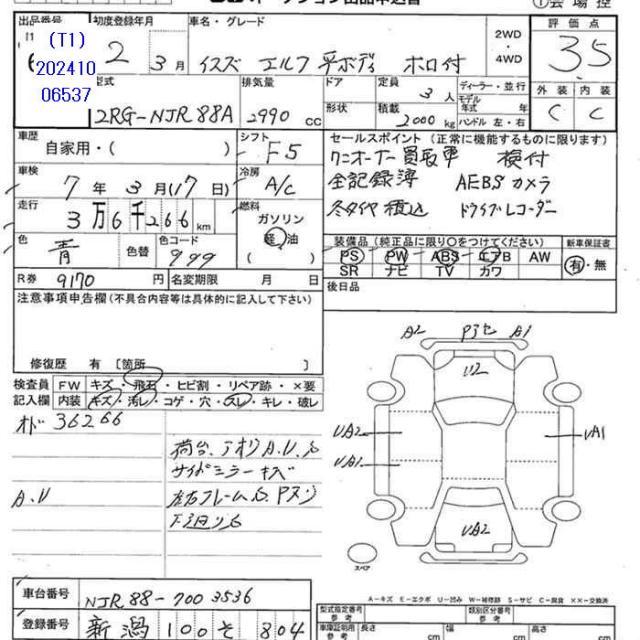 出品番号 初度登録年月 車名・グレード 2WD・4WD 評価点
(T1)
202410
06537
2 3月 いすズ エルフ 平ボディ ホロ付 3.5
型式 排気量 ドア 定員 3人 ディーラー・並行 外装 内装
2RG-NJR88A 2990 CC 形状 積載 2000kg モデル年式 年 ハンドル 左・右 C C
車歴 シフト セールスポイント (正常に機能するものに限ります)
自家用・( ) F5 ワンオーナー買取車 検付
車検 7年3月(17日) 冷房 A/C 全記録簿 AEBSカメラ
走行 3万6千266km 燃料 ガソリン 軽油 ( ) 冬タイヤ積込 ドライブレコーダー
色 青 色替 色コード 999 装備品 (純正品に限り○をつけてください) 新車保証書
PS PW ABS エアB AW 有・無
SR ナビ TV カワ
R券 9170円 名変期限 月 日 後日品
注意事項申告欄(不具合内容等は具体的に記入して下さい)
修復歴 有 [箇所 ]
検査員記入欄 FW キズ・飛石・ヒビ割・リペア跡・×要
内装 キズ・汚レ・コゲ・穴・スレ・キレ・破レ
オド 36266
荷台、アオリA.U.S
サイドミラーキズ
A.U
左右フレームS.Pヌリ
下廻りS
A2 A1
U2
UA2 UA1
UA1
UA2
スペア
A-キズ E-エクボ U-凹み W-補修跡 S-サビ C-腐食 ××-交換済
車台番号 NJR88-7003536
型式指定番号 参考 類別区分番号 参考
登録番号 新潟100そ804
車庫証明用 参考 長さ cm 幅 cm 高さ cm